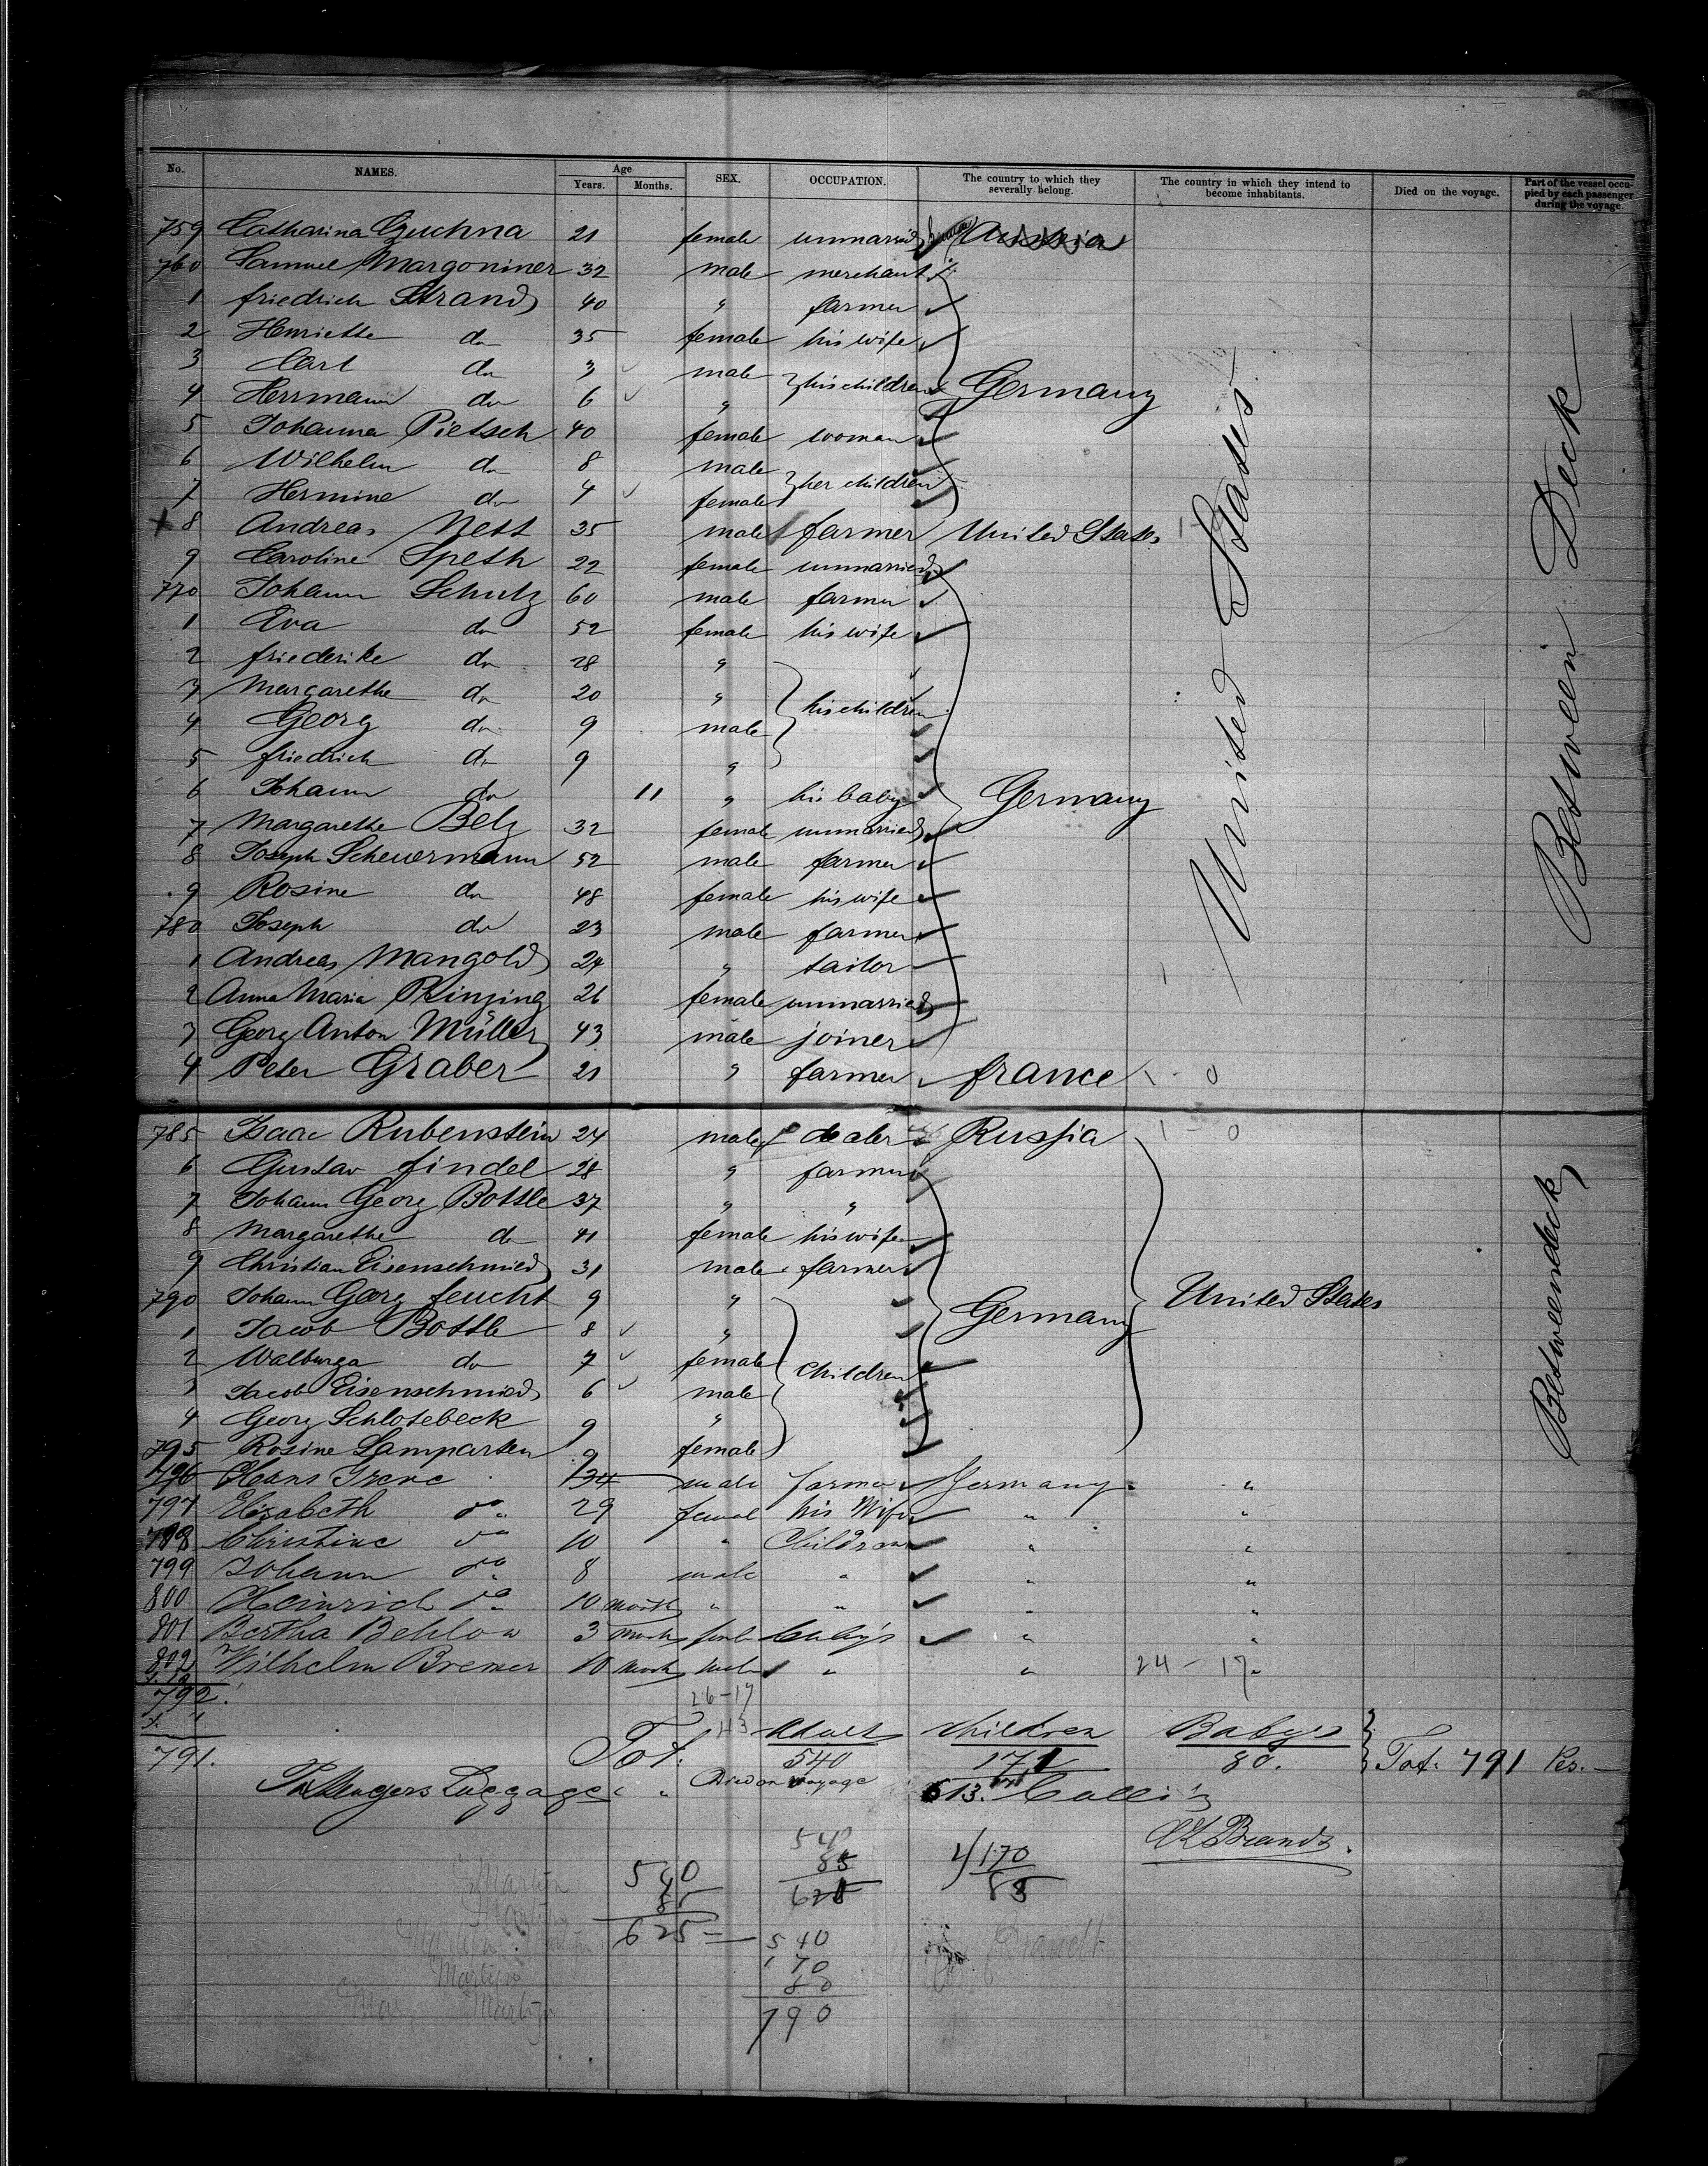 No. NAMES. Age Years. Months. SEX. OCCUPATION. The country to which they severally belong. The country in which they intend to become inhabitants. Died on the voyage. Part of the vessel occupied by each passenger during the voyage.
759 Catharina Czuchna 21 female unmarried
760 Samuel Margoniner 32 male merchant
1 friedrich Strand 40 " farmer
2 Henriette do 35 female his wife
3 Carl do 3 male his children Germany
4 Herrmann do 6 "
5 Johanna Pietsch 40 female woman
6 Wilhelm do 8 male her children
7 Hermine do 4 female
8 Andreas Nett 35 male farmer United States
9 Caroline Speth 22 female unmarried
770 Johann Schutz 60 male farmer
1 Eva do 52 female his wife
2 friederike do 28 "
3 Margarethe do 20 " his children
4 Georg do 9 male
5 friedrich do 9 "
6 Johann do 11 " his baby Germany
7 Margarethe Belz 32 female unmarried
8 Joseph Scheuermann 52 male farmer
9 Rosine do 48 female his wife
780 Joseph do 23 male farmer
1 Andreas Mangold 24 " tailor
2 Anna Maria 26 female unmarried
3 Georg Anton Müller 43 male joiner
4 Peter Graber 21 " farmer france 1 - 0
United States
Between Deck
785 Isaac Rubenstein 24 male dealer Russia 1 - 0
6 Gustav findel 28 " farmer
7 Johann Georg Bottle 37 " "
8 Margarethe do 41 female his wife
9 Christian Eisenschmied 31 male farmer
790 Johann Georg feucht 9 " Germany United States
1 Jacob Bottle 8 "
2 Walburga do 7 female children
3 Jacob Eisenschmied 6 male
4 Georg Schlotebeck 9 "
795 Rosine Lamparten 9 female
Betweendeck
796 Hans Irene 34 male farmer Germany "
797 Elisabeth do 29 femal his Wife " "
798 Christine do 10 " Children " "
799 Johann do 8 male " " "
800 Heinrich do 10 month " " " "
801 Bertha Behlow 3 month Baby's " "
802 Wilhelm Bremer 10 month " " 24 - 17
792. 26-17
43 Adult Children Baby's
791. Tot. 540 171 80. Tot. 791 Pes.
Passengers Luggage " Died on voyage 613. Colli's
Brands.
540 85 625
540 85 625
170 85
540 170 80 790
Brandt
Martijn
Martijn
Martijn
Martijn